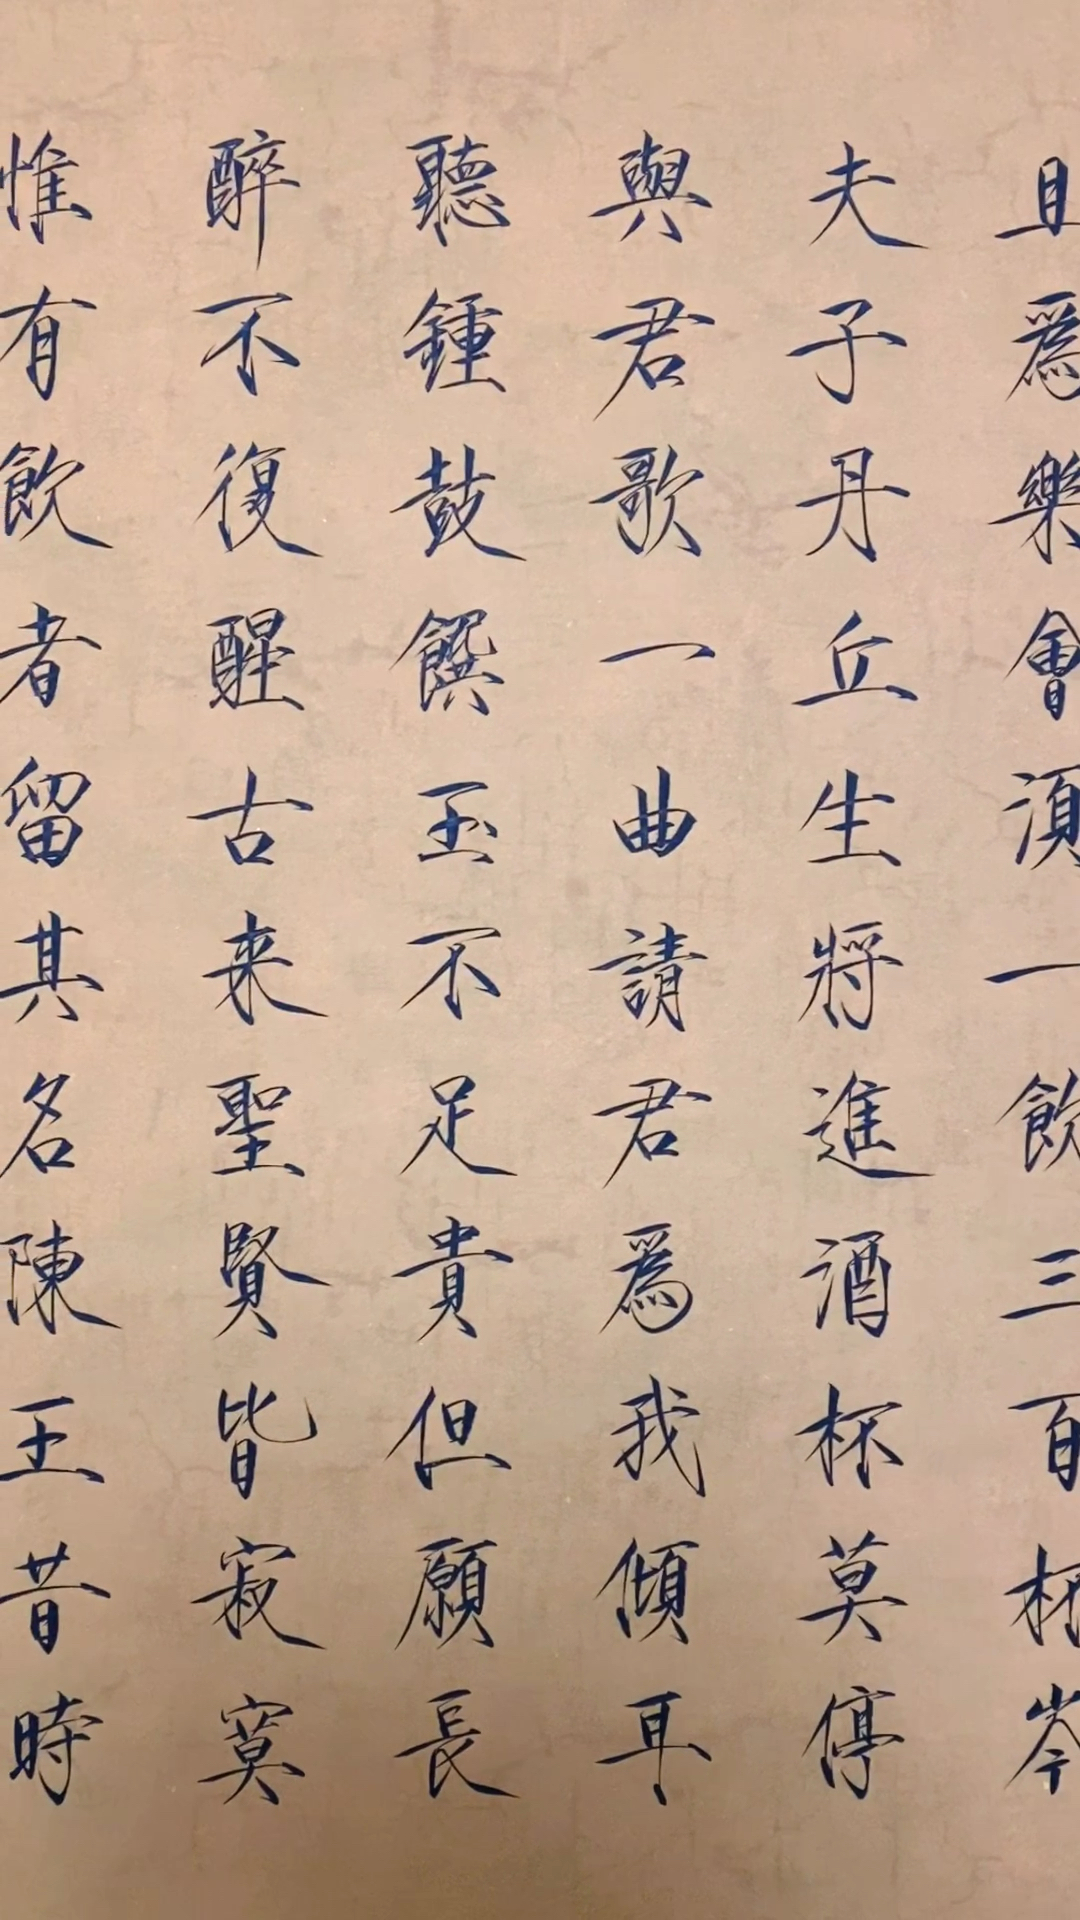 且爲樂會湏一飲三百杯岑
夫子丹丘生將進酒杯莫停
與君歌一曲請君爲我傾耳
聽鍾鼓饌玉不足貴但願長
醉不復醒古来聖賢皆寂寞
惟有飲者留其名陳王昔時